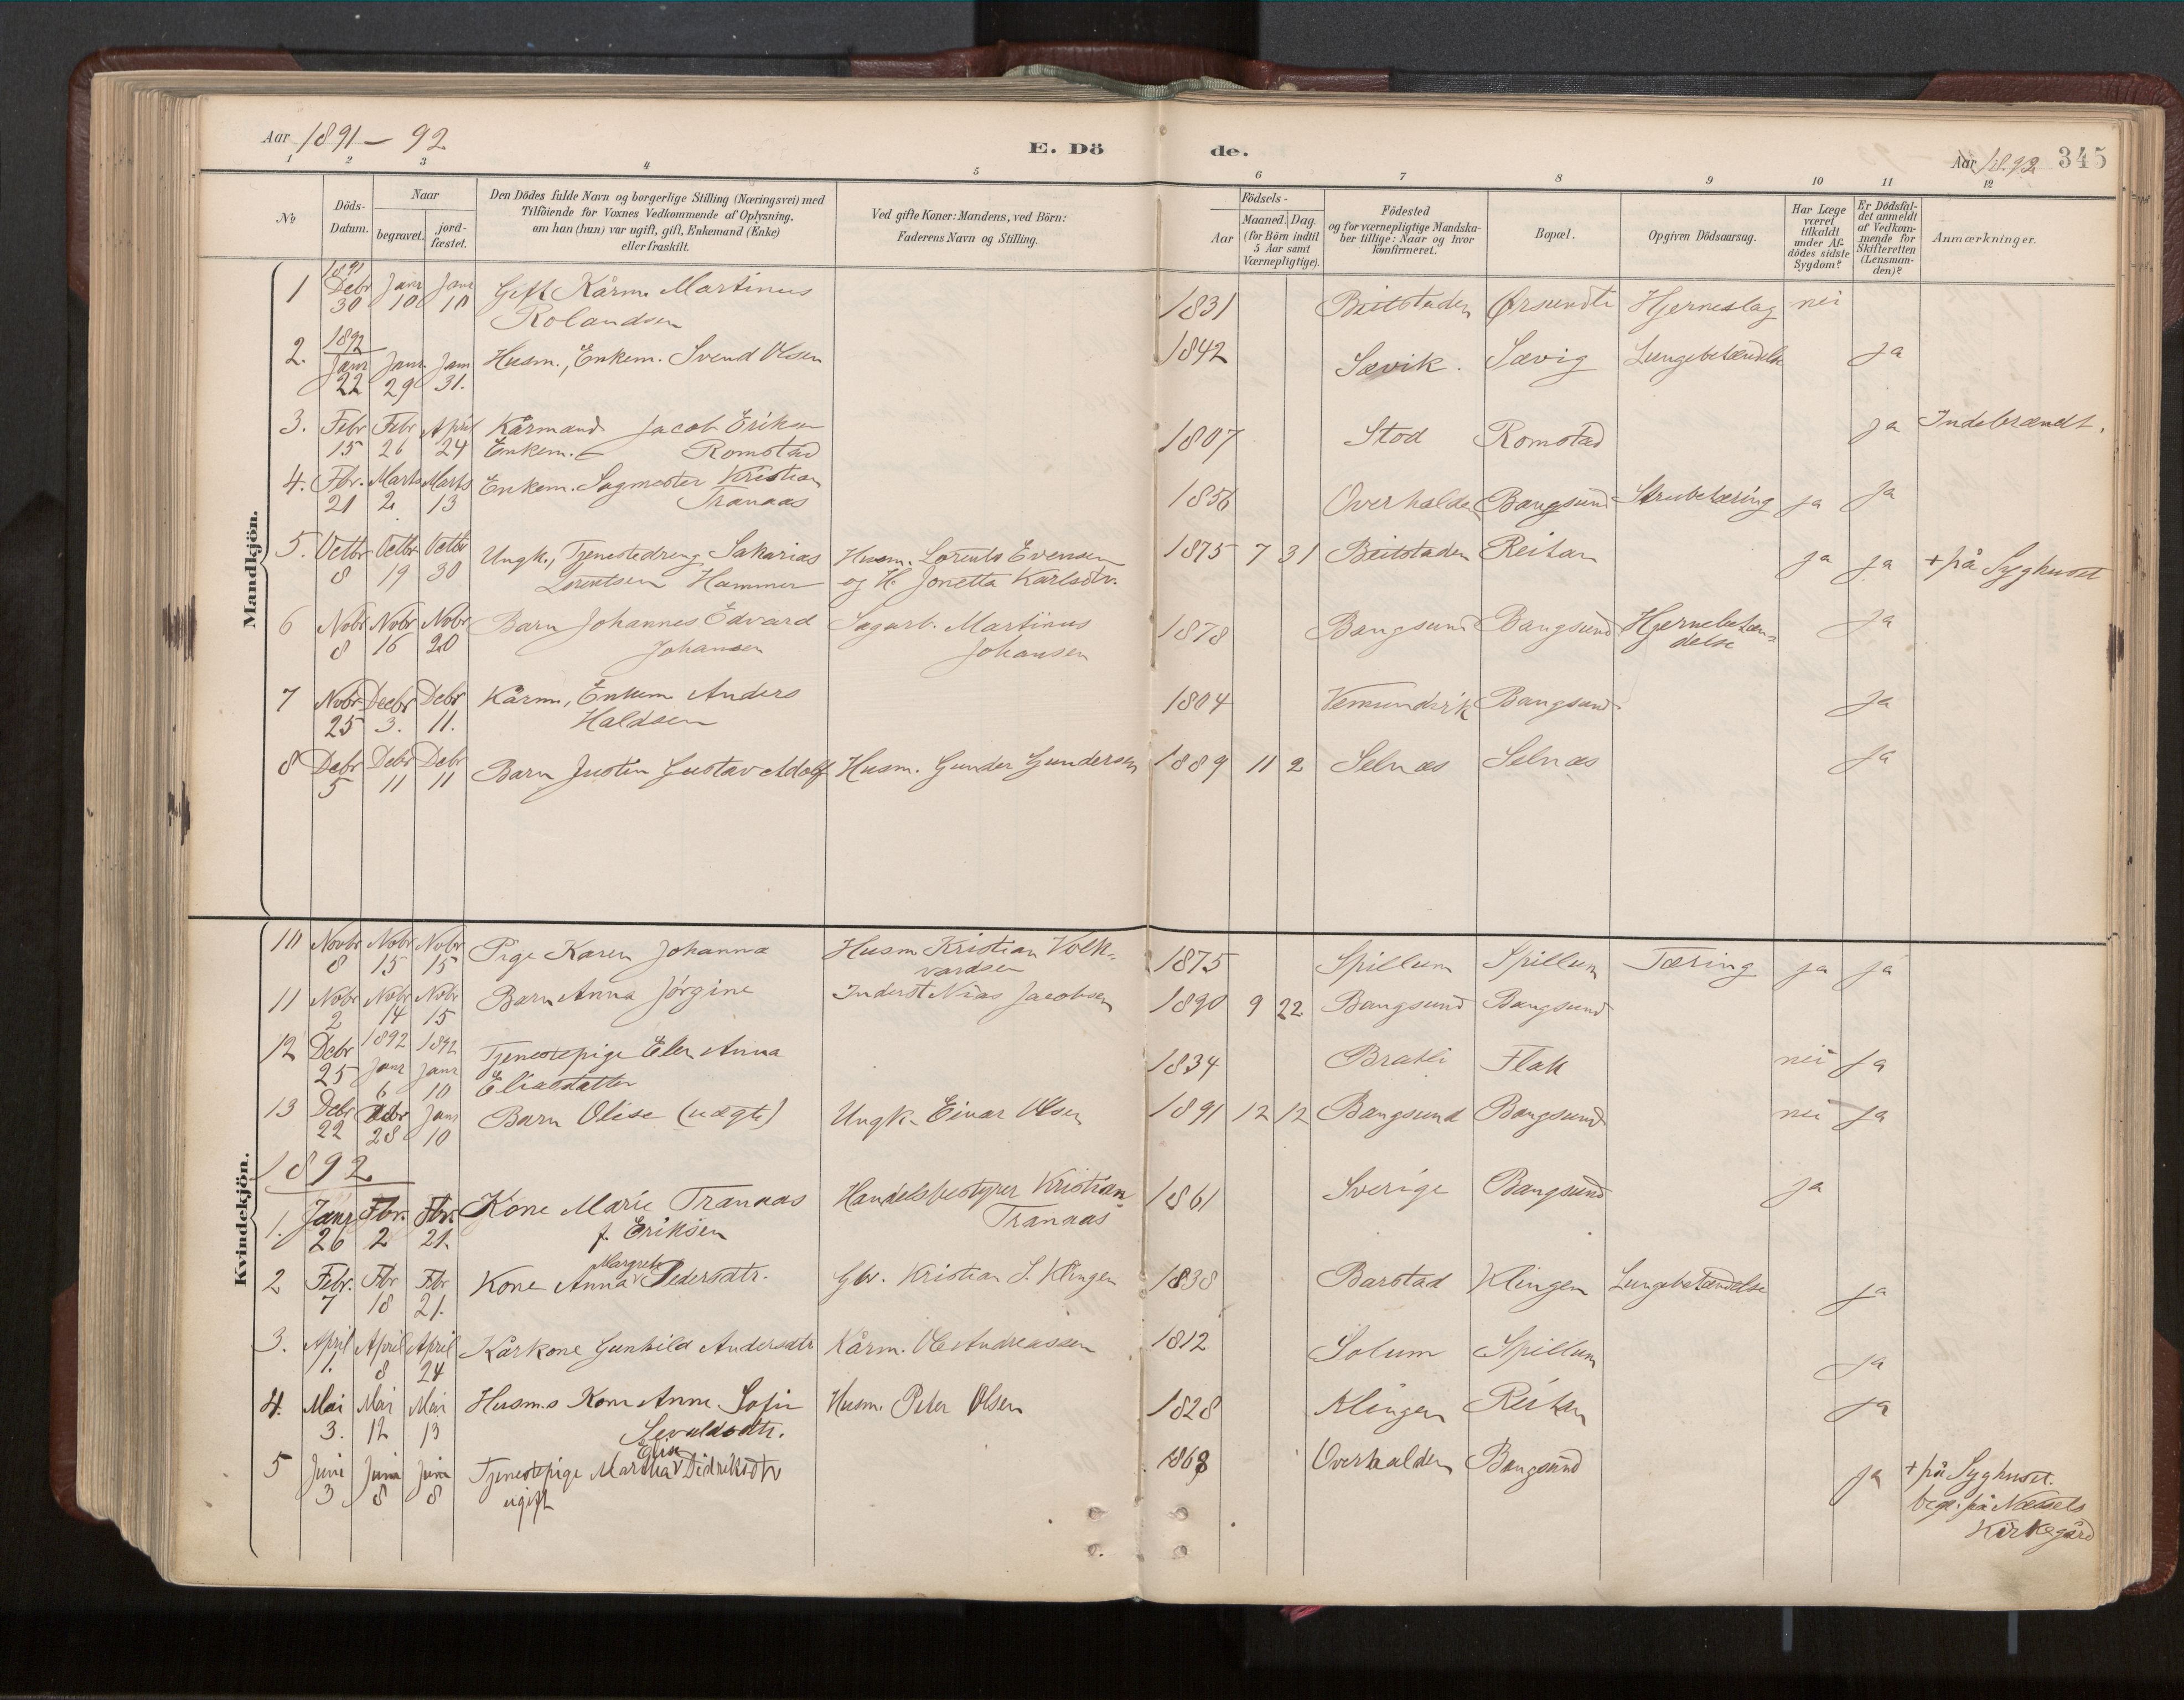 Aar 1891 — 92
E. Dö
de.
Aar 1892 345
1 2 3 4 5 6 7 8 9 10 11 12
№
Döds-Datum.
Naar
begravet.
jord-fæstet.
Den Dödes fulde Navn og borgerlige Stilling (Næringsvei) med
Tilföiende for Voxnes Vedkommende af Oplysning,
om han (hun) var ugift, gift, Enkemand (Enke)
eller fraskilt.
Ved gifte Koner: Mandens, ved Börn:
Faderens Navn og Stilling.
Födsels-
Aar
Maaned. Dag.
(for Börn indtil
5 Aar samt
Værnepligtige).
Födested
og for værnepligtige Mandska-
ber tillige: Naar og hvor
konfirmeret.
Bopæl.
Opgiven Dödsaarsag.
Har Læge
været
tilkaldt
under Af-
dödes sidste
Sygdom?
Er Dödsfal-
det anmeldt
af Vedkom-
mende for
Skifteretten
(Lensman-
den)?
Anmærkninger.
Mandkjön.
1891
1 Debr Janr Janr Gift Kårm. Martinus 1831 Beitstaden Ørsundte Hjerneslag nei
30 10 10 Rolandsen
1892
2. Janr Janr Jan Husm., Enkem. Svend Olsen 1842 Sævik. Sævig Lungebetændelse ja
22 29 31.
3. Febr Febr April Kårmand Jacob Eriksen 1807 Stod Romstad ja Indebrændt.
15 26 24 Enkem. Romstad
4. Fbr. Marts Marts Enkem. Sagmester Kristian 1856 Overhalden Bangsund Strubetæring ja ja
21 2 13 Tranaas
5. Octbr Octbr Octbr Ungk., Tjenestedreng Sakarias Husm. Lorents Evensen 1875 7 31 Beitstaden Reitan ja ja + på Syghuset
8 19 30 Lorentsen Hammer og H. Jonetta Karlsdtr.
6 Nobr Nobr Nobr Barn Johannes Edvard Sagarb. Martinus 1878 Bangsund Bangsund Hjernebetæn- ja
8 16 20 Johansen Johansen delse
7 Nobr Decbr Debr Kårm., Enkem Anders 1804 Vemundvik Bangsund ja
25 3. 11. Haldsen
8 Debr Debr Debr Barn Justin Gustav Adolf Husm. Gunder Gundersen 1889 11 2 Selnæs Selnæs ja
5 11 11
Kvindekjön.
10 Novbr Nobr Nobr Pige Karen Johanna Husm Kristian Volk- 1875 Spillum Spillum Tæring ja ja
8 15 15 vardsen
11 Nobr Nobr Nobr Barn Anna Jörgine Inderst Nias Jacobsen 1890 9 22 Bangsund Bangsund
2 14 15
12 Debr 1892 1892 Tjenestepige Elen Anna 1834 Bratli Flak nei ja
25 Janr Janr Eliasdatter
6 10
13 Debr Debr Janr Barn Olise (uægte) Ungk. Einar Olsen 1891 12 12 Bangsund Bangsund nei ja
22 28 10
1892
1. Janr Fbr. Fbr. Kone Marie Tranaas Handelsbestyrer Kristian 1861 Sverige Bangsund ja
26 2 21. f. Eriksen Tranaas
Margrete
2 Febr. Fbr Fbr Kone Anna Pedersdtr. Gbr. Kristian S. Klingen 1838 Barstad Klingen Lungebetændelse ja
7 18 21.
3. April April April Kårkone Gunhild Andersdtr Kårm. Ole Andreassen 1812 Solum Spillum ja
1. 8 24
4. Mai Mai Mai Husm.s Kone Anne Sofie Husm. Peter Olsen 1828 Klingen Reitan ja
3. 12 13 Sevaldsdtr.
Elin
5 Juni Juni Juni Tjenestepige Martha Didriksdtr 1868 Overhalden Bangsund ja + på Syghuset.
3 8 8 ugift begr. på Næssets
Kirkegård